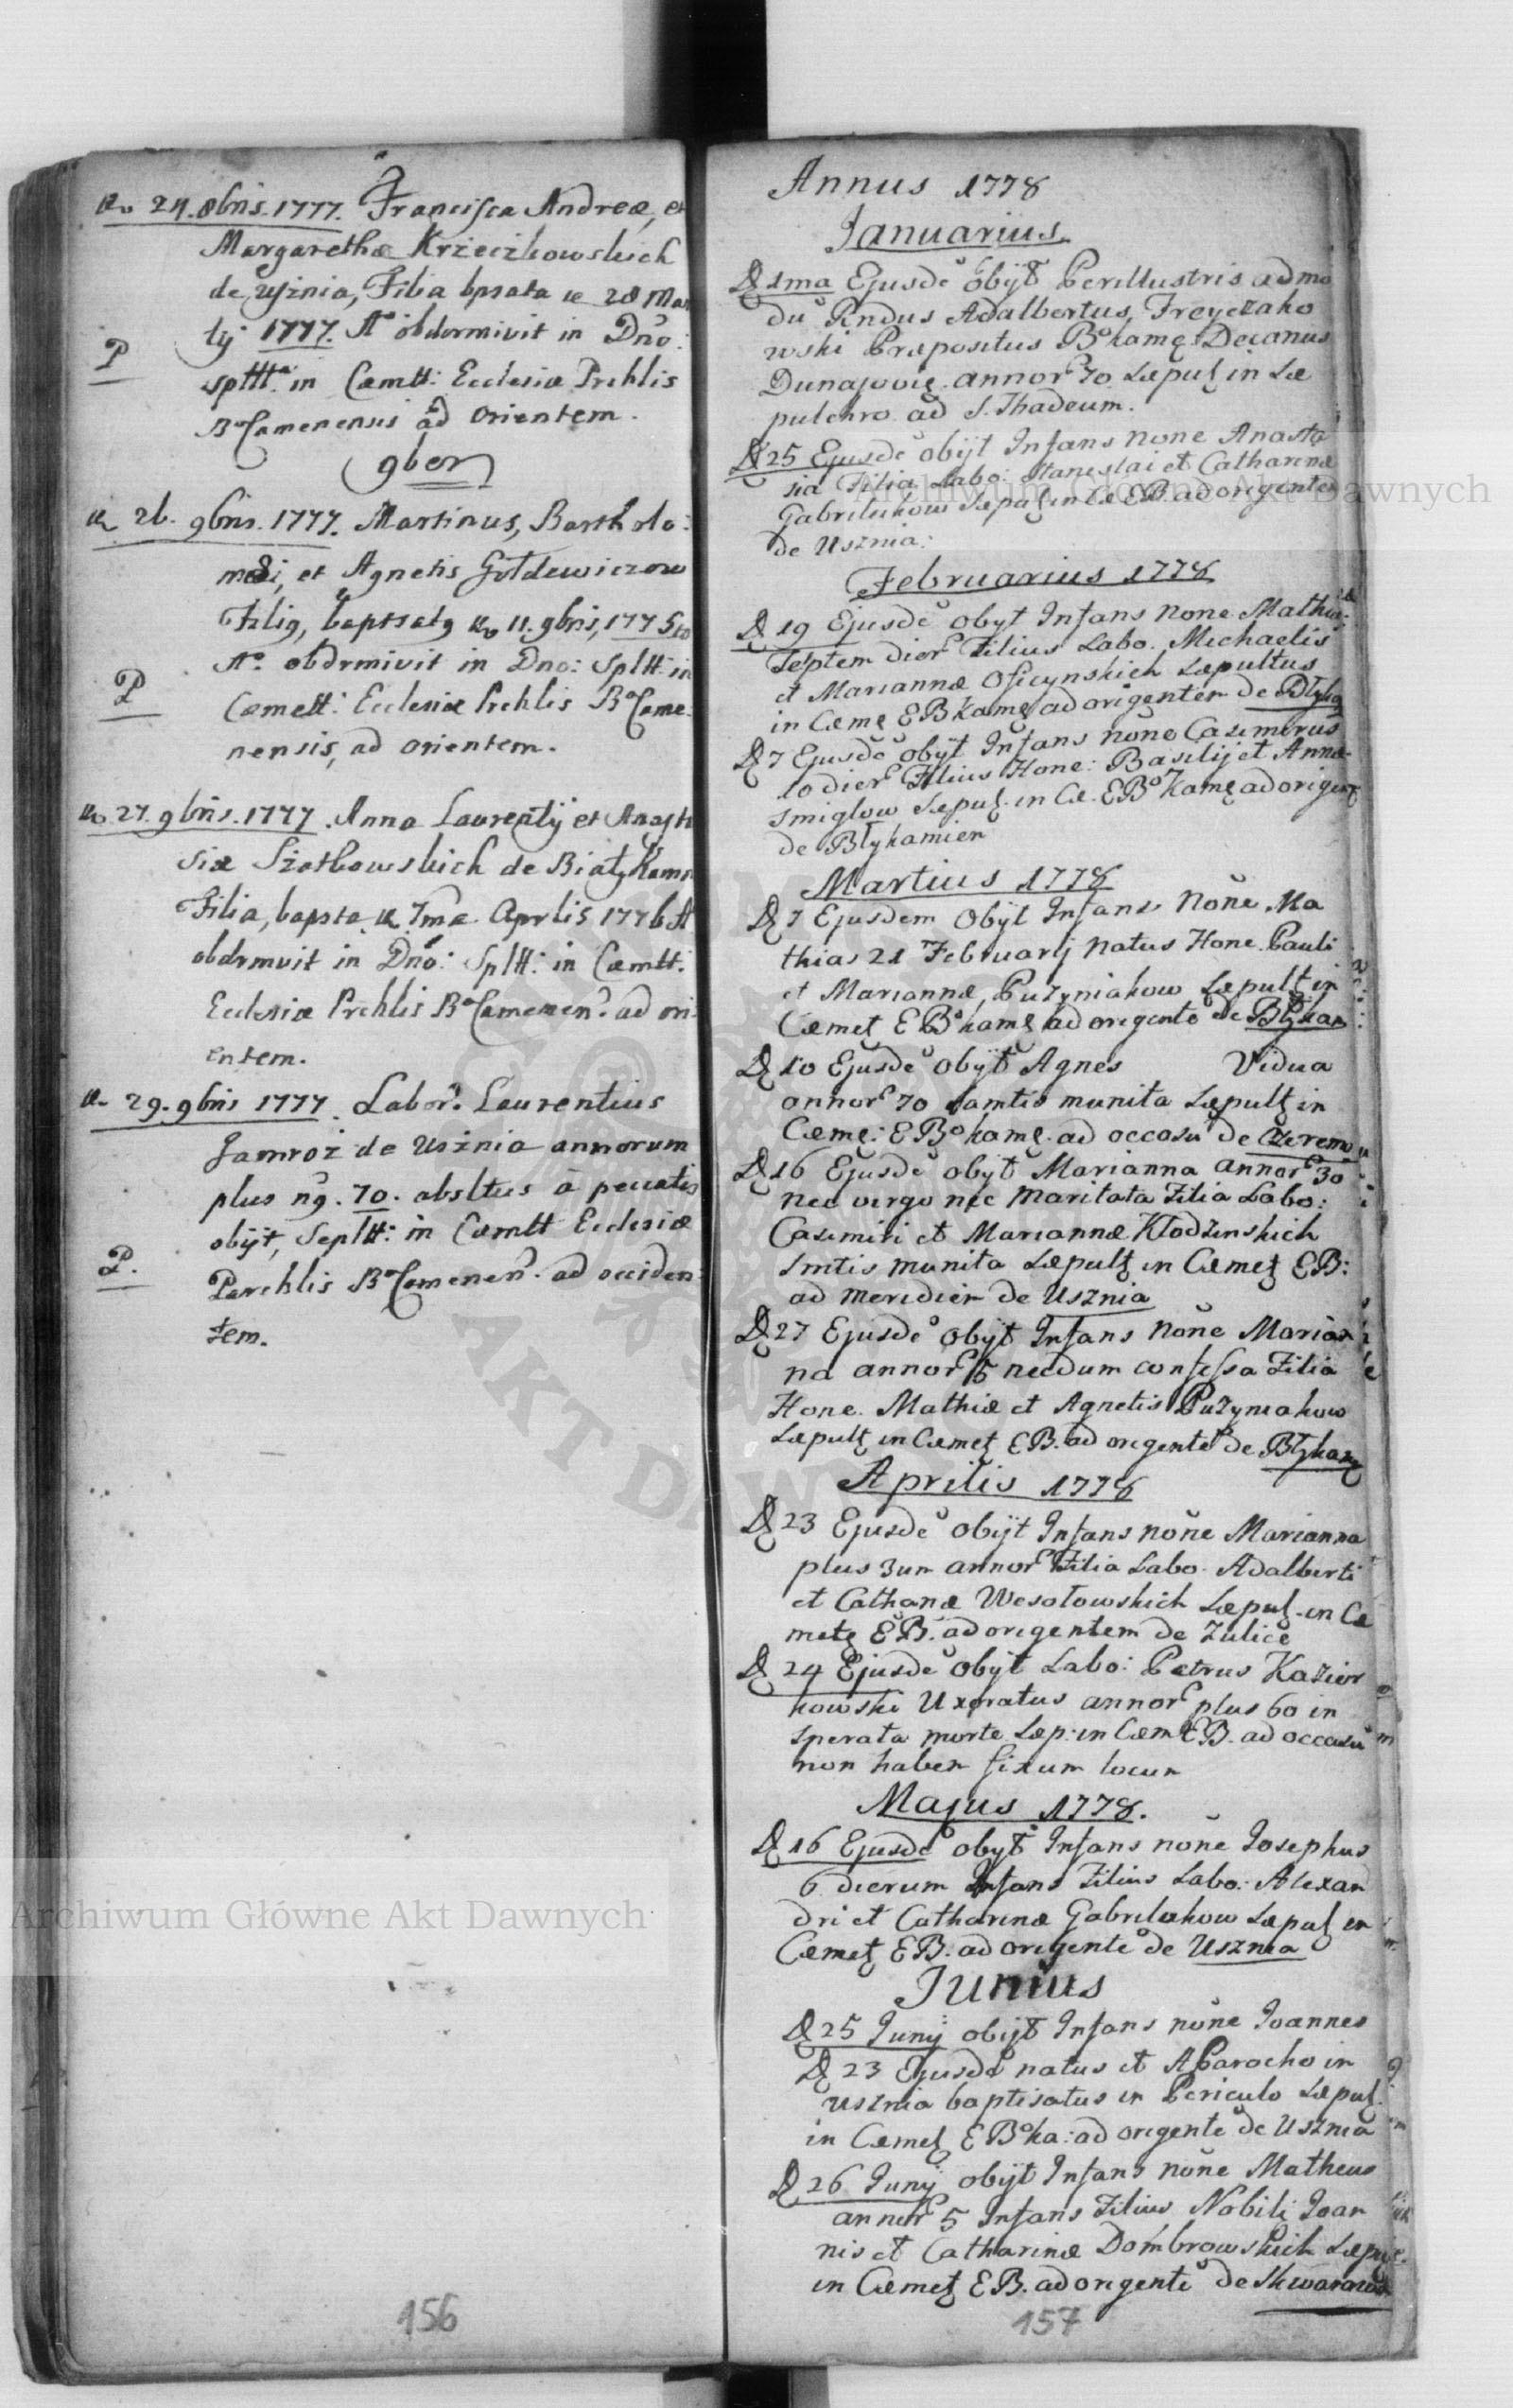 24. 8bris. 1777. Francisca Andreæ, et
Margarethæ Krzeczkowskich
de Usznia, Filia bpsata 28 Mar
tij 1777. Aº obdormivit in Dno:
P
spltta in Cæmtt: Ecclesiæ Prchlis
BºCamenensis ad Orientem.
9ber
26. 9bris. 1777. Martinus, Bartholo:
mæi, et Agnetis Gołdewiczow
Filig, baptsatg 11. 9bris, 1775to
Aº. obdrmivit in Dno: Spltt: in
P
Cæmett: Ecclesiæ Prchlis BºCame
nensis, ad orientem.
27. 9bris. 1777. Anna Laurentij et Anasta
siæ Szotkowskich de Biały Kamn
Filia, bapsta 7ma Aprlis 1776 A
obdrmvit in Dno: Spltt: in Cæmtt:
Ecclesiæ Prchlis BºCamenen. ad ori
entem.
29. 9bris 1777. Labor. Laurentius
Jamroz de Usznia annorum
plus ng. 70. absltus à peccatis
obijt, Sepltt: in Cæmtt Ecclesiæ
P.
Parchlis BºCamenen. ad occiden
tem.
156
Annus 1778
Januarius
D 1ma Ejusdē obijt Perillustris admo
dū Rndus Adalbertus, Freyczako
wski Præpositus Bºkamę Decanus
Dunajovię. annor 70 Sæpul in Sæ
pulchro ad S. Thadeum.
D 25 Ejusdē obijt Infans none Anasta
sia Filia Labo: Staneslai et Catharinæ
Gabrilukow Sæpul in Cæ EB. ad origente
de Usznia:
Februarius 1778
D 19 Ejusdē obyt Infans none Mathia
Septem dier Filius Labo. Michaelis
et Mariannæ Osicynskich Sæpultus
in Cæmę EBkamę ad origentem de Błyka
D 7 Ejusdē obijt Infans none Casimirus
10 dier Filius Hone: Basilij et Annæ
Smiglow Sæpul. in Cæ. EBºkamę ad origent
de Błykamien
Martius 1778
D 7 Ejusdem Obijt Infans None Ma
thias 21 Februarij natus Hone. Pauli
et Mariannæ, Puzyniakow Sæpult in
Cæmet EBºkamę ad origente de Błykam
D 10 Ejusdē obijt Agnes Vidua
annor 70 samtis munita Sæpult in
Cæmę: EBºkamę. ad occasū de Czeremo
D 16 Ejusdē obijt Marianna annor 30
nec virgo nec maritata Filia Labo:
Casimiri et Mariannæ Kłodzinskich
Smtis munita Sæpult in Cæmet EB:
ad meridien de Usznia
D 27 Ejusdē obijt Infans None Marian
na annor 5 necdum confessa Filia
Hone. Mathiæ et Agnetis Puzyniakow
Sæpult in Cæmet EB. ad origentē de Błykam
Aprilis 1778
D 23 Ejusdē obijt Infans none Marianna
plus 3um annor Filia Labo. Adalberti
et Cathanæ Wesołowskich Sæpul. in Cæ
metę EB. ad origentem de Zulice
D 24 Ejusdē obijt Labo: Petrus Kazior
kowski Uxoratus annor plus 60 in
sperata morte Sæp: in Cæm EB. ad occasū
non haben fixum locum
Majus 1778.
D 16 Ejusdē obyt Infans none Josephus
6 dierum Infans Filius Labo: Alexan
dri et Catharinæ Gabrilukow Sæpul in
Cæmet EB. ad origentē de Usznia
Junius
D 25 Junij obijt Infans none Joannes
D 23 Ejusdē natus et A Parocho in
Usznia baptisatus in Periculo Sæpul.
in Cæmet EBºka: ad origentē de Usznia
D 26 Junij obijt Infans none Matheus
annor 5 Infans Filius Nobili Joan
nis et Catharinæ Dombrowskich Sæpul
in Cæmet EB. ad origentē de Skwarzawa
157
Archiwum Główne Akt Dawnych
Archiwum Główne Akt Dawnych